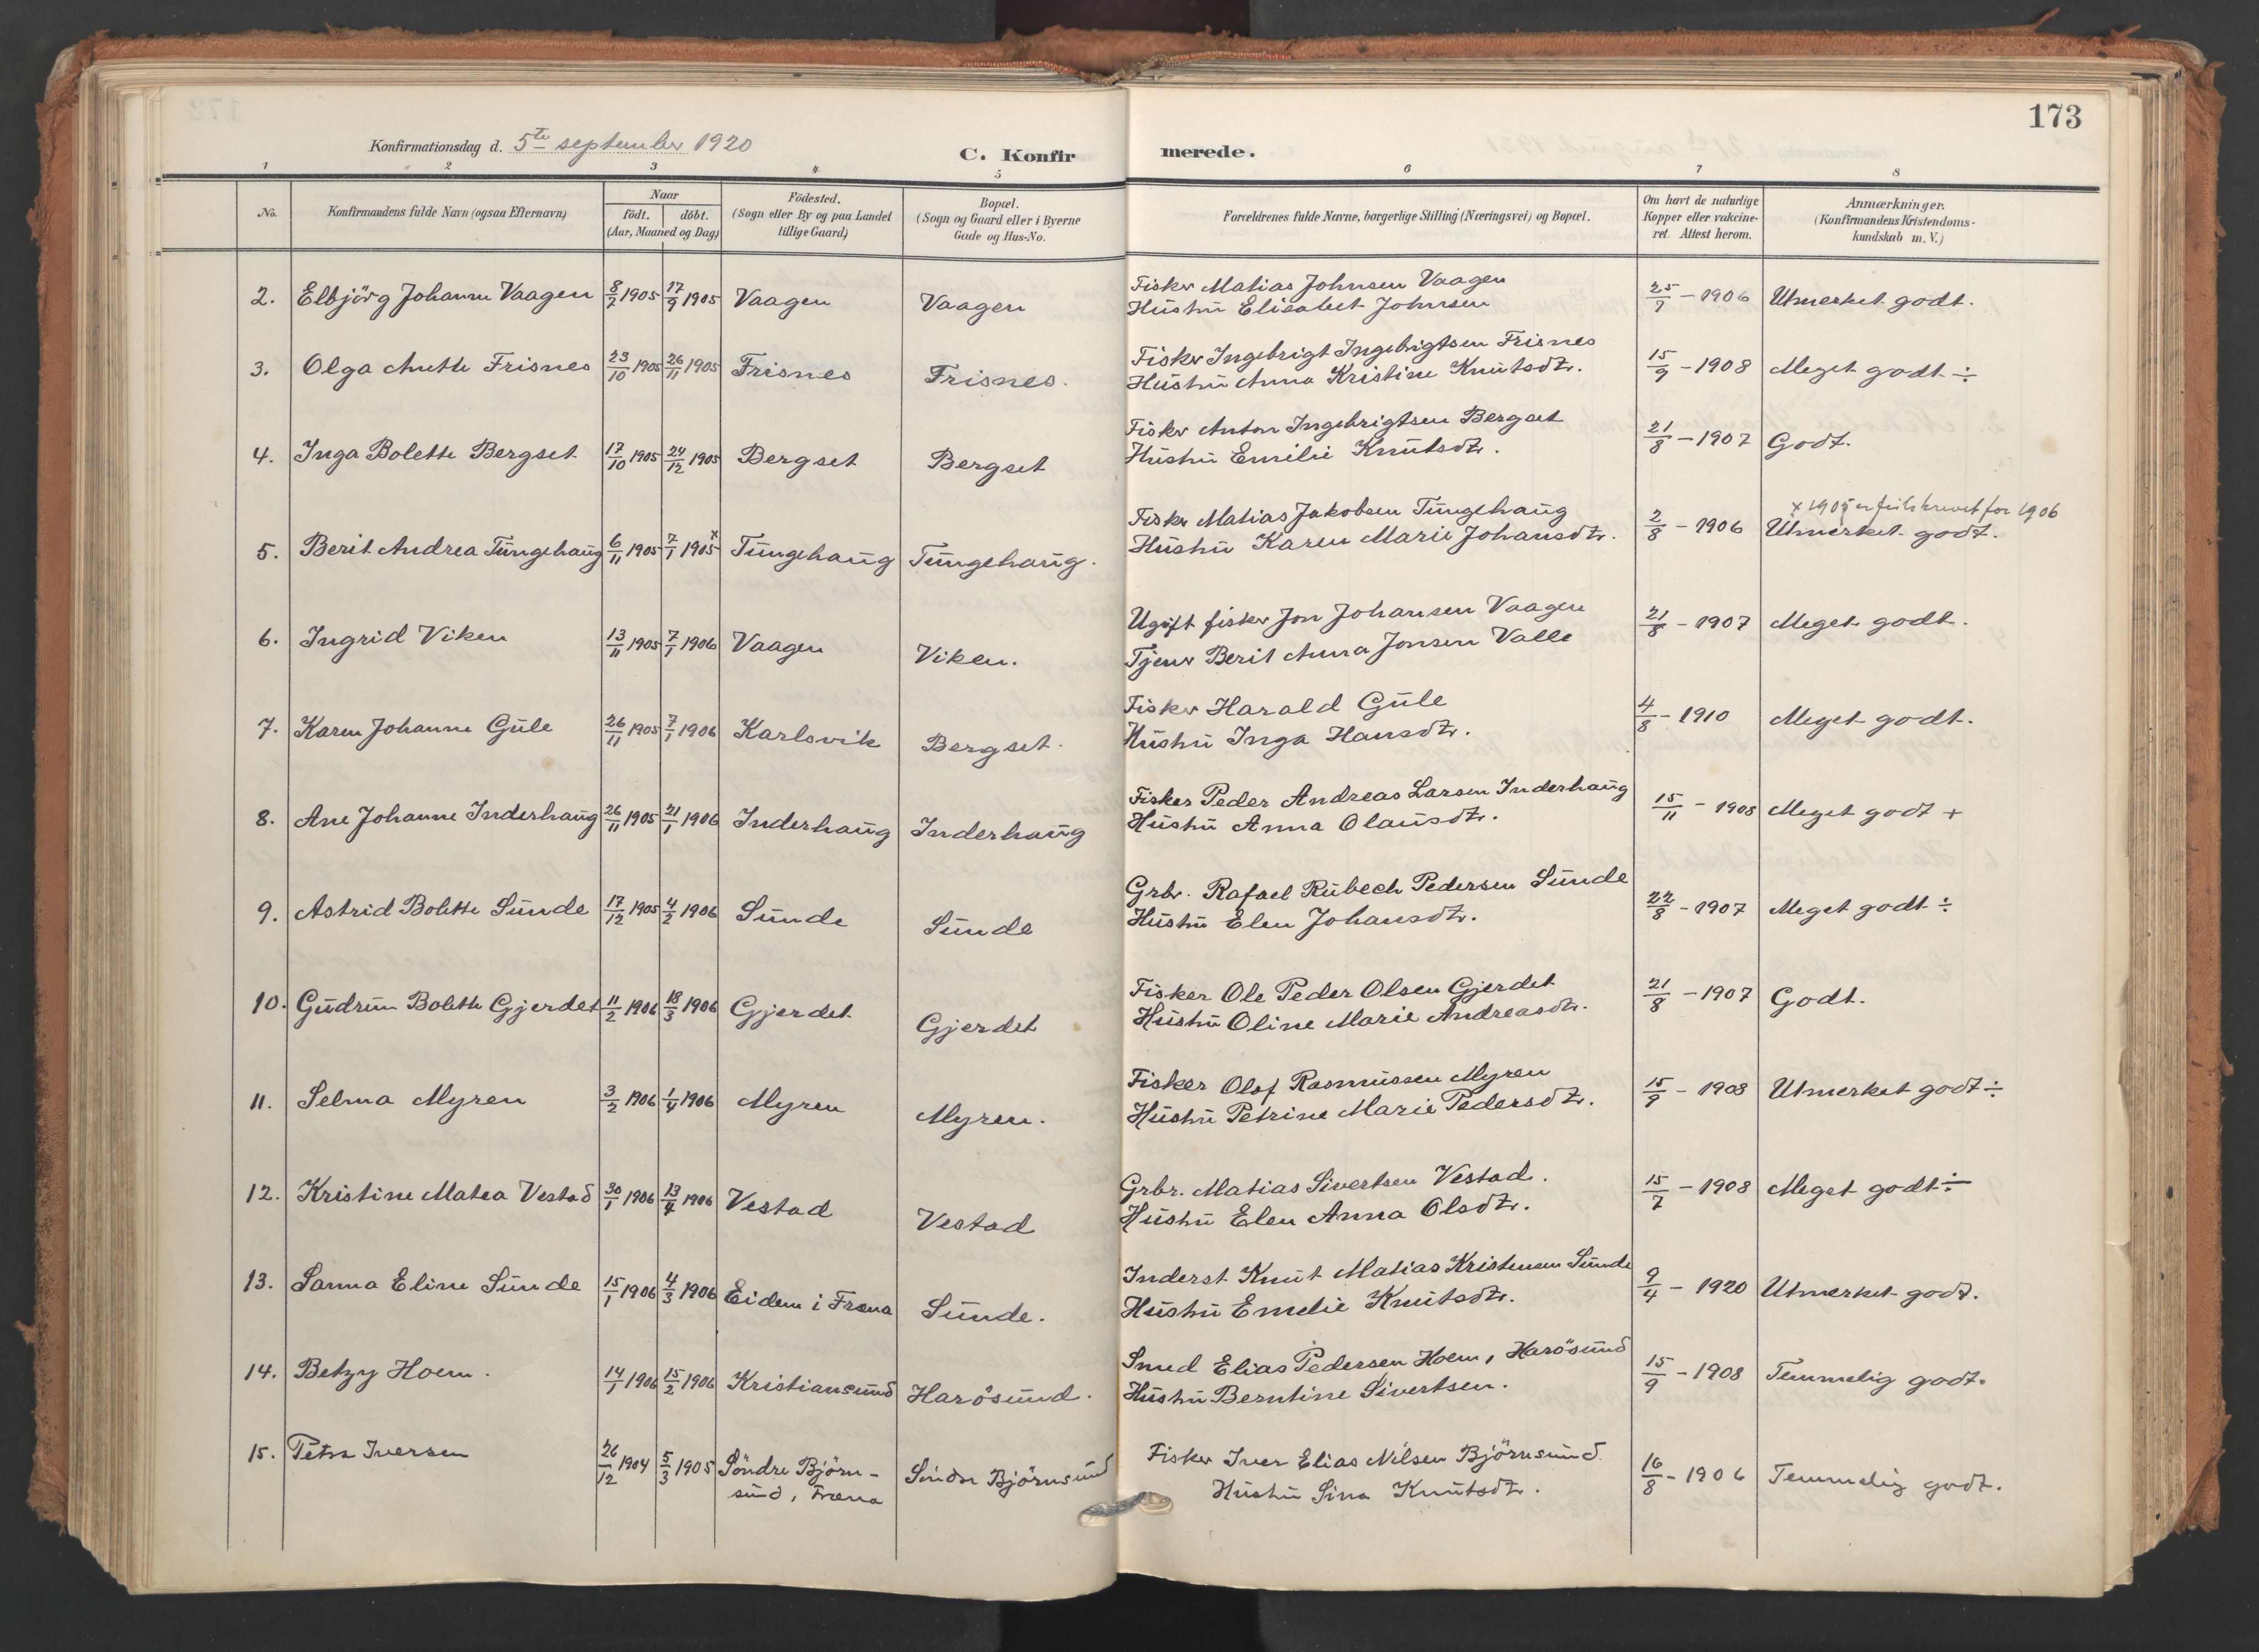 173
Konfirmationsdag d. 5te september 1920
C. Konfirmerede.
1 2 3 4 5 6 7 8
No. | Konfirmandens fulde Navn (ogsaa Efternavn) | Naar födt. döbt. (Aar, Maaned og Dag) | Födested. (Sogn eller By og paa Landet tillige Gaard) | Bopæl. (Sogn og Gaard eller i Byerne Gade og Hus-No. | Forældrenes fulde Navne, borgerlige Stilling (Næringsvei) og Bopæl. | Om havt de naturlige Kopper eller vakcineret. Attest herom. | Anmærkninger. (Konfirmandens Kristendomskundskab m. V.)
2. Elbjörg Johanne Vaagen 8/7 1905 17/9 1905 Vaagen Vaagen Fisker Matias Johnsen Vaagen 25/7 - 1906 Utmerket godt.
Hustru Elisabet Johnsen
3. Olga Anette Frisnes 23/10 1905 26/11 1905 Frisnes Frisnes. Fisker Ingebrigt Ingebrigtsen Frisnes 15/9 - 1908 Meget godt ÷
Hustru Anna Kristine Knutsdtr.
4. Inga Bolette Bergset 17/10 1905 24/12 1905 Bergset Bergset Fisker Anton Ingebrigtsen Bergset 21/8 - 1907 Godt.
Hustru Emilie Knutsdtr.
x 1905 er feilskrevet for 1906
5. Berit Andrea Tungehaug 6/11 1905 7/1 1905 x Tungehaug Tungehaug. Fisker Matias Jakobsen Tungehaug 2/8 - 1906 Utmerket godt.
Hustru Karen Marie Johansdtr.
6. Ingrid Viken 13/11 1905 7/1 1906 Vaagen Viken. Ugift fisker Jon Johansen Vaagen 21/8 - 1907 Meget godt.
Tjener Berit Anna Jonsen Valle
7. Karen Johanne Gule 26/11 1905 7/1 1906 Karlsvik Bergset. Fisker Harald Gule 4/8 - 1910 Meget godt.
Hustru Inga Hansdtr.
8. Ane Johanne Inderhaug 26/11 1905 21/1 1906 Inderhaug Inderhaug Fisker Peder Andreas Larsen Inderhaug 15/11 - 1908 Meget godt +
Hustru Anna Olausdtr.
9. Astrid Bolette Sunde 17/12 1905 4/2 1906 Sunde Sunde Grbr. Rafael Rubech Pedersen Sunde 22/8 - 1907 Meget godt ÷
Hustru Elen Johansdtr.
10. Gudrun Bolette Gjerdet 11/2 1906 18/3 1906 Gjerdet Gjerdet Fisker Ole Peder Olsen Gjerdet 21/8 - 1907 Godt.
Hustru Oline Marie Andreasdtr.
11. Selma Myren 3/2 1906 1/4 1906 Myren Myren. Fisker Olaf Rasmussen Myren 15/9 - 1908 Utmerket godt ÷
Hustru Petrine Marie Pedersdtr.
12. Kristine Matea Vestad 30/1 1906 13/4 1906 Vestad Vestad Grbr. Matias Sivertsen Vestad. 15/7 - 1908 Meget godt ÷
Hustru Elen Anna Olsdtr.
13. Sanna Eline Sunde 15/1 1906 4/3 1906 Eidem i Fræna Sunde. Inderst Knut Matias Kristensen Sunde 9/4 - 1920 Utmerket godt.
Hustru Emelie Knutsdtr.
14. Betzy Hoem. 14/1 1906 15/2 1906 Kristiansund Harösund. Smed Elias Pedersen Hoem, Harösund 15/9 - 1908 Temmelig godt.
Hustru Berntine Sivertsen.
15. Petra Iversen 26/12 1904 5/3 1905 Söndre Björn- Söndre Björnsund Fisker Iver Elias Nilsen Björnsund. 16/8 - 1906 Temmelig godt.
sund, Fræna Hustru Sina Knutsdtr.